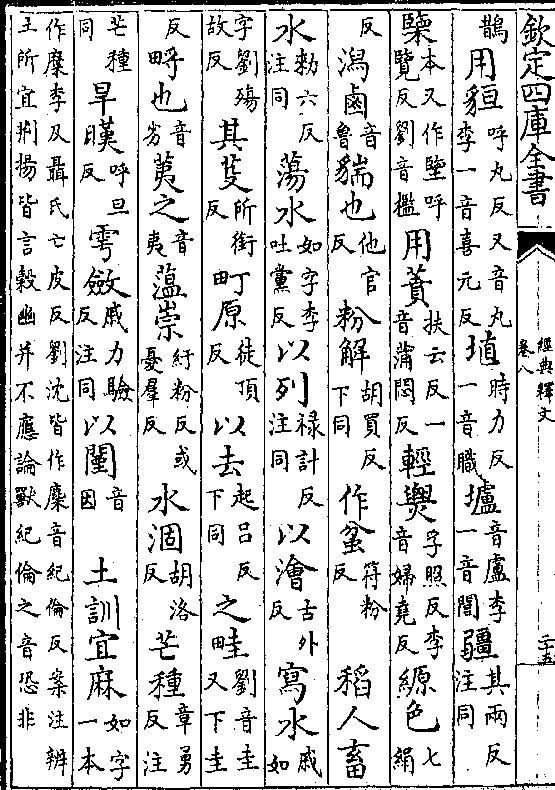 欽定四庫全書
經典釋文
卷八
二十五
鵲 用貆呼丸反又音丸李一音喜元反 埴時力反一音職 壚音盧李一音閭 彊其兩反注同
㯺本又作壏呼覽反劉音檻 用蕡扶云反一音蒲悶反 輕㷳孚照反李音婦堯反 縓色七絹
反 潟鹵音魯 貒也他官反 粉解胡買反下同 作蚠符粉反 稻人畜
水勑六反注同 蕩水如字李吐黨反 以列祿計反注同 以澮古外反 寫水戚如
字劉殤故反 其芟所銜反 町原徒頂反 以去起呂反下同 之畦劉音圭又下圭
反 㽟也音劣 荑之音夷 薀崇紆粉反或憂羣反 水涸胡洛反 芒種章勇反注
芒種同 旱暵呼旦反 雩斂戚力驗反注同 以闉音因 土訓宜麻如字一本
作糜李及聶氏亡皮反劉沈皆作麇音紀倫反案注辨
土所宜荆揚皆言穀幽并不應論獸紀倫之音恐非